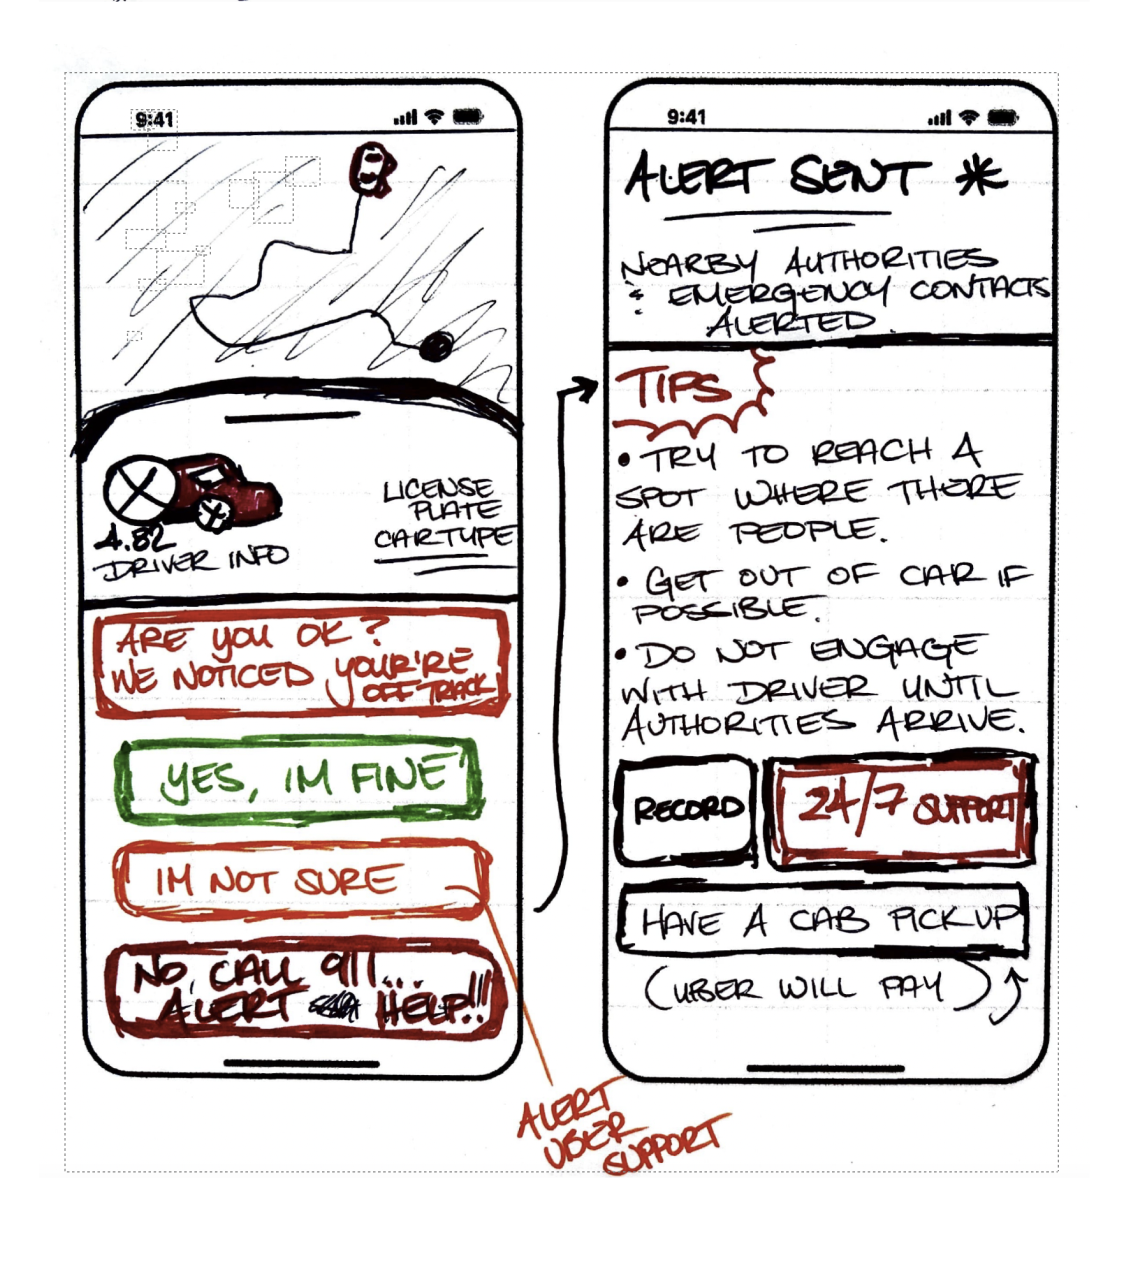 9:41
4.82
DRIVER INFO
LICENSE
PLATE
CARTYPE
ARE YOU OK?
WE NOTICED YOUR'RE
OFF TRACK
YES, IM FINE
IM NOT SURE
NO, CALL 911...
ALERT HELP!!!
ALERT
UBER
SUPPORT
9:41
ALERT SENT *
NEARBY AUTHORITIES
& EMERGENCY CONTACTS
ALERTED.
TIPS
• TRY TO REACH A
SPOT WHERE THERE
ARE PEOPLE.
• GET OUT OF CAR IF
POSSIBLE.
• DO NOT ENGAGE
WITH DRIVER UNTIL
AUTHORITIES ARRIVE.
RECORD
24/7 SUPPORT
HAVE A CAB PICK UP
(UBER WILL PAY)